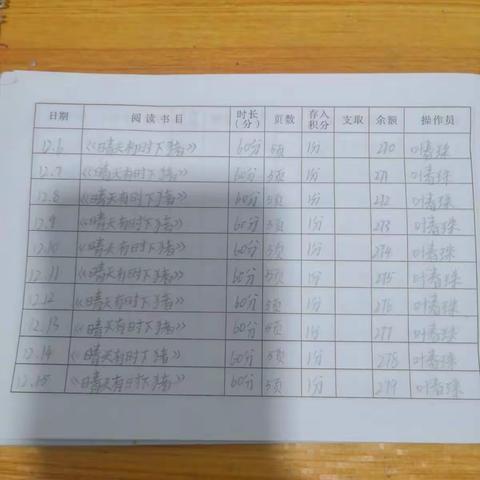 日期 阅读书目 时长(分) 页数 存入积分 支取 余额 操作员
12.6 《晴天有时下猪》 60分 5页 1分 270 叶春珠
12.7 《晴天有时下猪》 60分 5页 1分 271 叶春珠
12.8 《晴天有时下猪》 60分 5页 1分 272 叶春珠
12.9 《晴天有时下猪》 60分 5页 1分 273 叶春珠
12.10 《晴天有时下猪》 60分 5页 1分 274 叶春珠
12.11 《晴天有时下猪》 60分 5页 1分 275 叶春珠
12.12 《晴天有时下猪》 60分 5页 1分 276 叶春珠
12.13 《晴天有时下猪》 60分 5页 1分 277 叶春珠
12.14 《晴天有时下猪》 60分 5页 1分 278 叶春珠
12.15 《晴天有时下猪》 60分 5页 1分 279 叶春珠